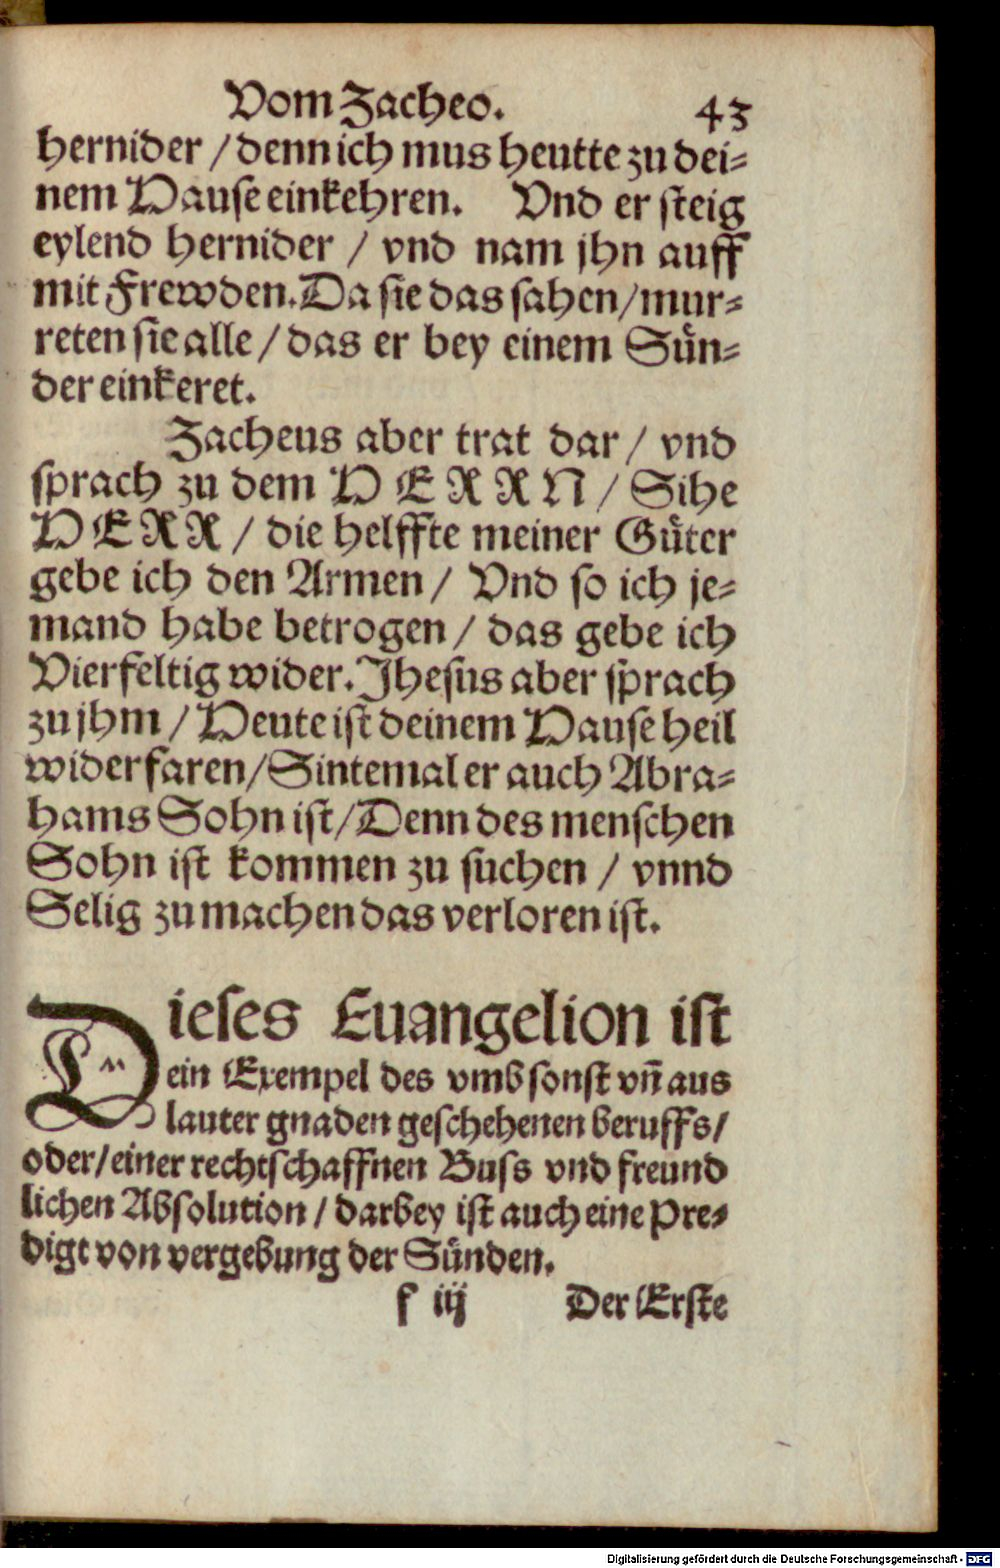 Vom Zacheo. 43
hernider / denn ich mus heutte zu dei⸗
nem Hause einkehren. Vnd er steig
eylend hernider / vnd nam jhn auff
mit Frewden. Da sie das sahen / mur⸗
reten sie alle / das er bey einem Sün⸗
der einkeret.
Zacheus aber trat dar / vnd
sprach zu dem HERRN / Sihe
HERR / die helffte meiner Güter
gebe ich den Armen / Vnd so ich je⸗
mand habe betrogen / das gebe ich
Vierfeltig wider. Jhesus aber sprach
zu jhm / Heute ist deinem Hause heil
widerfaren / Sintemal er auch Abra⸗
hams Sohn ist / Denn des menschen
Sohn ist kommen zu suchen / vnnd
Selig zu machen das verloren ist.
Dieses Euangelion ist
ein Exempel des vmbsonst vñ aus
lauter gnaden geschehenen beruffs /
oder / einer rechtschaffnen Buss vnd freund
lichen Absolution / darbey ist auch eine Pre⸗
digt von vergebung der Sünden.
f iij Der Erste
Digitalisierung gefördert durch die Deutsche Forschungsgemeinschaft - DFG